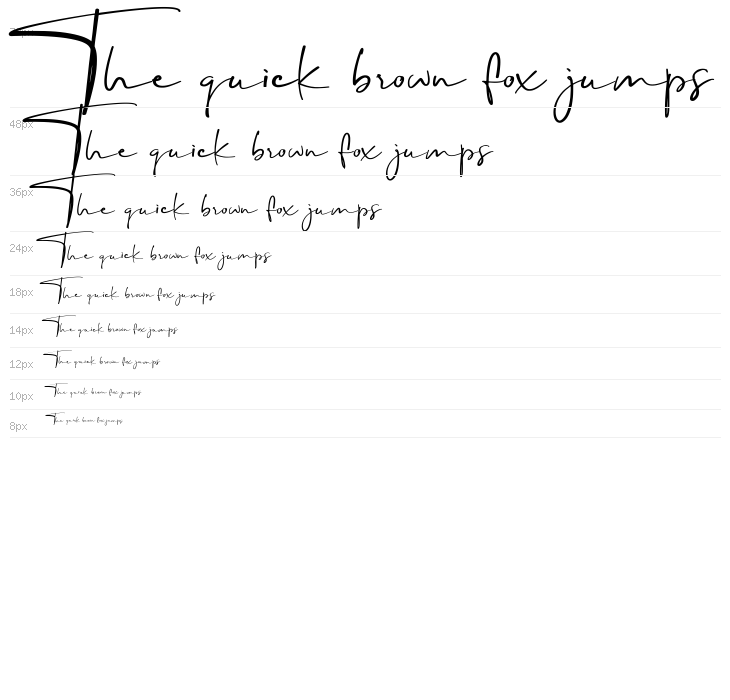 The quick brown fox jumps
48px The quick brown fox jumps
36px The quick brown fox jumps
24px The quick brown fox jumps
18px The quick brown fox jumps
14px The quick brown fox jumps
12px The quick brown fox jumps
10px The quick brown fox jumps
8px The quick brown fox jumps